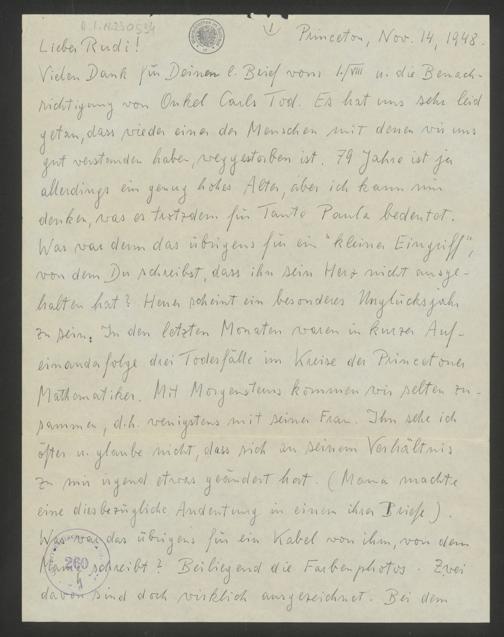 Princeton, Nov. 14, 1948.
Lieber Rudi!
Vielen Dank für Deinen l. Brief vom 1./VIII u. die Benach-
richtigung von Onkel Carls Tod. Es hat uns sehr leid
getan, dass wieder einer der Menschen mit denen wir uns
gut verstanden haben, weggestorben ist. 79 Jahre ist ja
allerdings ein genug hohes Alter, aber ich kann mir
denken, was es trotzdem für Tante Paula bedeutet.
Was war denn das übrigens für ein "kleiner Eingriff",
von dem Du schreibst, dass ihn sein Herz nicht ausge-
halten hat? Heuer scheint ein besonderes Unglücksjahr
zu sein. In den letzten Monaten waren in kurzer Auf-
einanderfolge drei Todesfälle im Kreise der Princetoner
Mathematiker. Mit Morgensterns kommen wir selten zu-
sammen, d.h. wenigstens mit seiner Frau. Ihn sehe ich
öfter u. glaube nicht, dass sich an seinem Verhältnis
zu mir irgend etwas geändert hat. (Mama machte
eine diesbezügliche Andeutung in einem ihrer Briefe).
Was war das übrigens für ein Kabel von ihm, von dem
Mama schreibt? Beiliegend die Farbenphotos. Zwei
davon sind doch wirklich ausgezeichnet. Bei dem
260